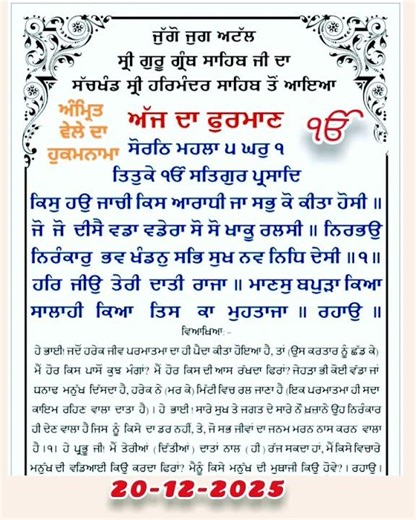 ਜੁੱਗੋ ਜੁਗ ਅਟੱਲ
ਸ੍ਰੀ ਗੁਰੂ ਗ੍ਰੰਥ ਸਾਹਿਬ ਜੀ ਦਾ
ਸੱਚਖੰਡ ਸ੍ਰੀ ਹਰਿਮੰਦਰ ਸਾਹਿਬ ਤੋਂ ਆਇਆ
ਅੰਮ੍ਰਿਤ
ਵੇਲੇ ਦਾ
ਹੁਕਮਨਾਮਾ
ਅੱਜ ਦਾ ਫੁਰਮਾਣ
ੴ
ਸੋਰਠਿ ਮਹਲਾ ੫ ਘਰੁ ੧
ਤਿਤੁਕੇ ੴ ਸਤਿਗੁਰ ਪ੍ਰਸਾਦਿ
ਕਿਸੁ ਹਉ ਜਾਚੀ ਕਿਸ ਆਰਾਧੀ ਜਾ ਸਭੁ ਕੋ ਕੀਤਾ ਹੋਸੀ ॥
ਜੋ ਜੋ ਦੀਸੈ ਵਡਾ ਵਡੇਰਾ ਸੋ ਸੋ ਖਾਕੂ ਰਲਸੀ ॥ ਨਿਰਭਉ
ਨਿਰੰਕਾਰੁ ਭਵ ਖੰਡਨੁ ਸਭਿ ਸੁਖ ਨਵ ਨਿਧਿ ਦੇਸੀ ॥੧॥
ਹਰਿ ਜੀਉ ਤੇਰੀ ਦਾਤੀ ਰਾਜਾ ॥ ਮਾਣਸੁ ਬਪੁੜਾ ਕਿਆ
ਸਾਲਾਹੀ ਕਿਆ ਤਿਸ ਕਾ ਮੁਹਤਾਜਾ ॥ ਰਹਾਉ ॥
ਵਿਆਖਿਆ: -
ਹੇ ਭਾਈ! ਜਦੋਂ ਹਰੇਕ ਜੀਵ ਪਰਮਾਤਮਾ ਦਾ ਹੀ ਪੈਦਾ ਕੀਤਾ ਹੋਇਆ ਹੈ, ਤਾਂ (ਉਸ ਕਰਤਾਰ ਨੂੰ ਛੱਡ ਕੇ)
ਮੈਂ ਹੋਰ ਕਿਸ ਪਾਸੋਂ ਕੁਝ ਮੰਗਾਂ? ਮੈਂ ਹੋਰ ਕਿਸ ਦੀ ਆਸ ਰੱਖਦਾ ਫਿਰਾਂ? ਜੇਹੜਾ ਭੀ ਕੋਈ ਵੱਡਾ ਜਾਂ
ਧਨਾਢ ਮਨੁੱਖ ਦਿੱਸਦਾ ਹੈ, ਹਰੇਕ ਨੇ (ਮਰ ਕੇ) ਮਿੱਟੀ ਵਿਚ ਰਲ ਜਾਣਾ ਹੈ (ਇਕ ਪਰਮਾਤਮਾ ਹੀ ਸਦਾ
ਕਾਇਮ ਰਹਿਣ ਵਾਲਾ ਦਾਤਾ ਹੈ)। ਹੇ ਭਾਈ! ਸਾਰੇ ਸੁਖ ਤੇ ਜਗਤ ਦੇ ਸਾਰੇ ਨੌ ਖ਼ਜ਼ਾਨੇ ਉਹ ਨਿਰੰਕਾਰ
ਹੀ ਦੇਣ ਵਾਲਾ ਹੈ ਜਿਸ ਨੂੰ ਕਿਸੇ ਦਾ ਡਰ ਨਹੀਂ, ਤੇ, ਜੋ ਸਭ ਜੀਵਾਂ ਦਾ ਜਨਮ ਮਰਨ ਨਾਸ ਕਰਨ ਵਾਲਾ
ਹੈ।੧। ਹੇ ਪ੍ਰਭੂ ਜੀ! ਮੈਂ ਤੇਰੀਆਂ (ਦਿੱਤੀਆਂ) ਦਾਤਾਂ ਨਾਲ (ਹੀ) ਰੱਜ ਸਕਦਾ ਹਾਂ, ਮੈਂ ਕਿਸੇ ਵਿਚਾਰੇ
ਮਨੁੱਖ ਦੀ ਵਡਿਆਈ ਕਿਉਂ ਕਰਦਾ ਫਿਰਾਂ? ਮੈਨੂੰ ਕਿਸੇ ਮਨੁੱਖ ਦੀ ਮੁਥਾਜੀ ਕਿਉਂ ਹੋਵੇ?। ਰਹਾਉ।
20-12-2025